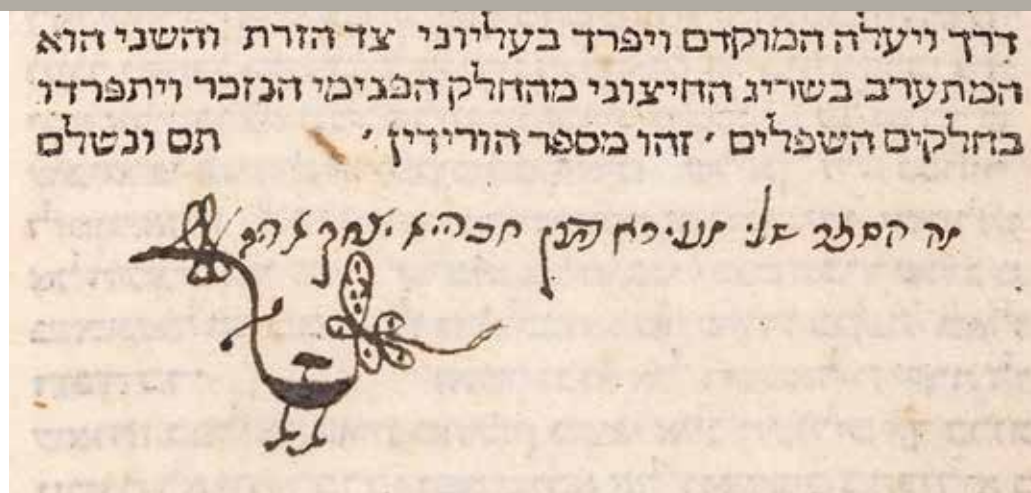 דרך ויעלה המוקדם ויפרד בעליוני צד הזרת והשני הוא
המתערב בשריג החיצוני מהחלק הפנימי הנזכר ויתפרדו
בחלקים השפלים ׳ זהו מספר הורידין ׳ תם ונשלם
זה הספר שלי